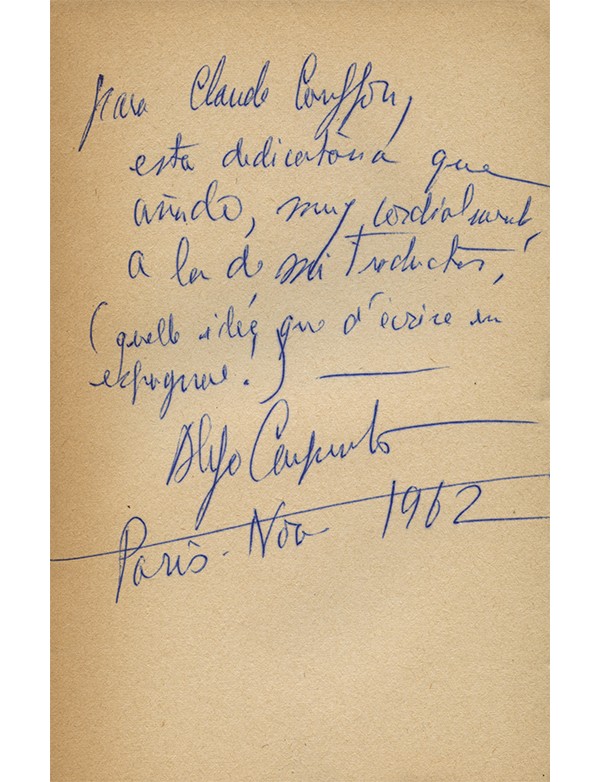 para Claude Couffon,
esta dedicatoria que
añado, muy cordialmente,
a la de mi traductor,
(quelle idée que d'écrire en
espagnol.)
Alejo Carpentier
Paris. Nov 1962